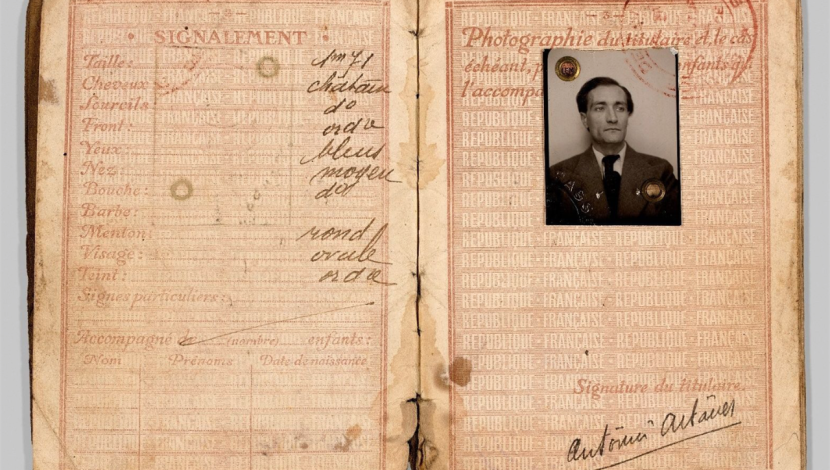 SIGNALEMENT
Taille : 1m71
Cheveux : chatain
Sourcils : do
Front : orde
Yeux : bleus
Nez : moyen
Bouche : do
Barbe :
Menton : rond
Visage : ovale
Teint : orde
Signes particuliers :
Accompagné de (nombre) enfants :
Nom Prénoms Date de naissance
RÉPUBLIQUE FRANÇAISE
Photographie du titulaire et, le cas
échéant, enfants
l'accompa
Signature du titulaire.
Antonin Artaud